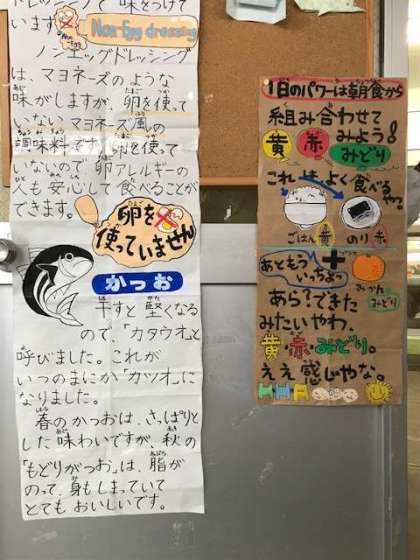 ドレッシングで味をつけて
います。
Non-Egg dressing
ノンエッグドレッシング
は、マヨネーズのような
味がしますが、卵を使って
いないマヨネーズ風の
調味料です。卵を使って
いないので卵アレルギーの
人も安心して食べることが
できます。
卵を
使っていません
かつお
干すと堅くなる
ので、「カタウオ」と
呼びました。これが
いつのまにか「カツオ」に
なりました。
春のかつおは、さっぱりと
した味わいですが、秋の
「もどりがつお」は、脂が
のって、身もしまっていて
とてもおいしいです。
1日のパワーは朝食から
組み合わせて
みよう!
黄 赤 みどり
これはよく食べる
やつ。
ごはん 黄 のり 赤
あともう
いっちょっ
+
みかん
みどり
あら?できた
みたいやわ、
黄・赤・みどり。
ええ感じやな。